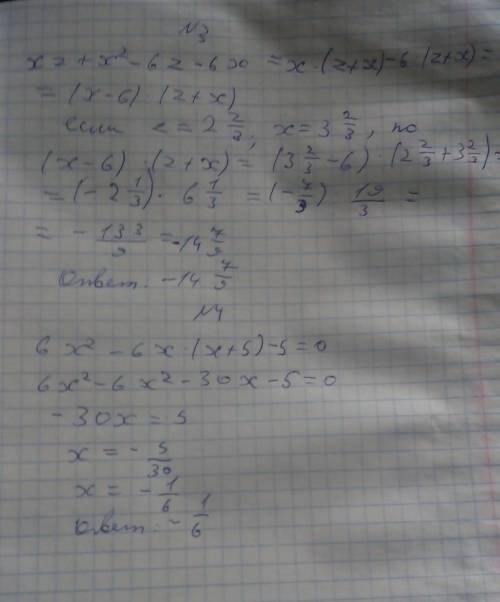 №3
xz + x² - 6z - 6x = x·(z+x) - 6·(z+x) =
= (x-6)·(z+x)
если z = 2 2/3, x = 3 2/3, то
(x-6)·(z+x) = (3 2/3 - 6)·(2 2/3 + 3 2/3) =
= (-2 1/3)·6 1/3 = (-7/3) 19/3 =
= - 133/9 = -14 7/9
Ответ: -14 7/9
№4
6x² - 6x·(x+5) - 5 = 0
6x² - 6x² - 30x - 5 = 0
-30x = 5
x = - 5/30
x = - 1/6
Ответ: - 1/6